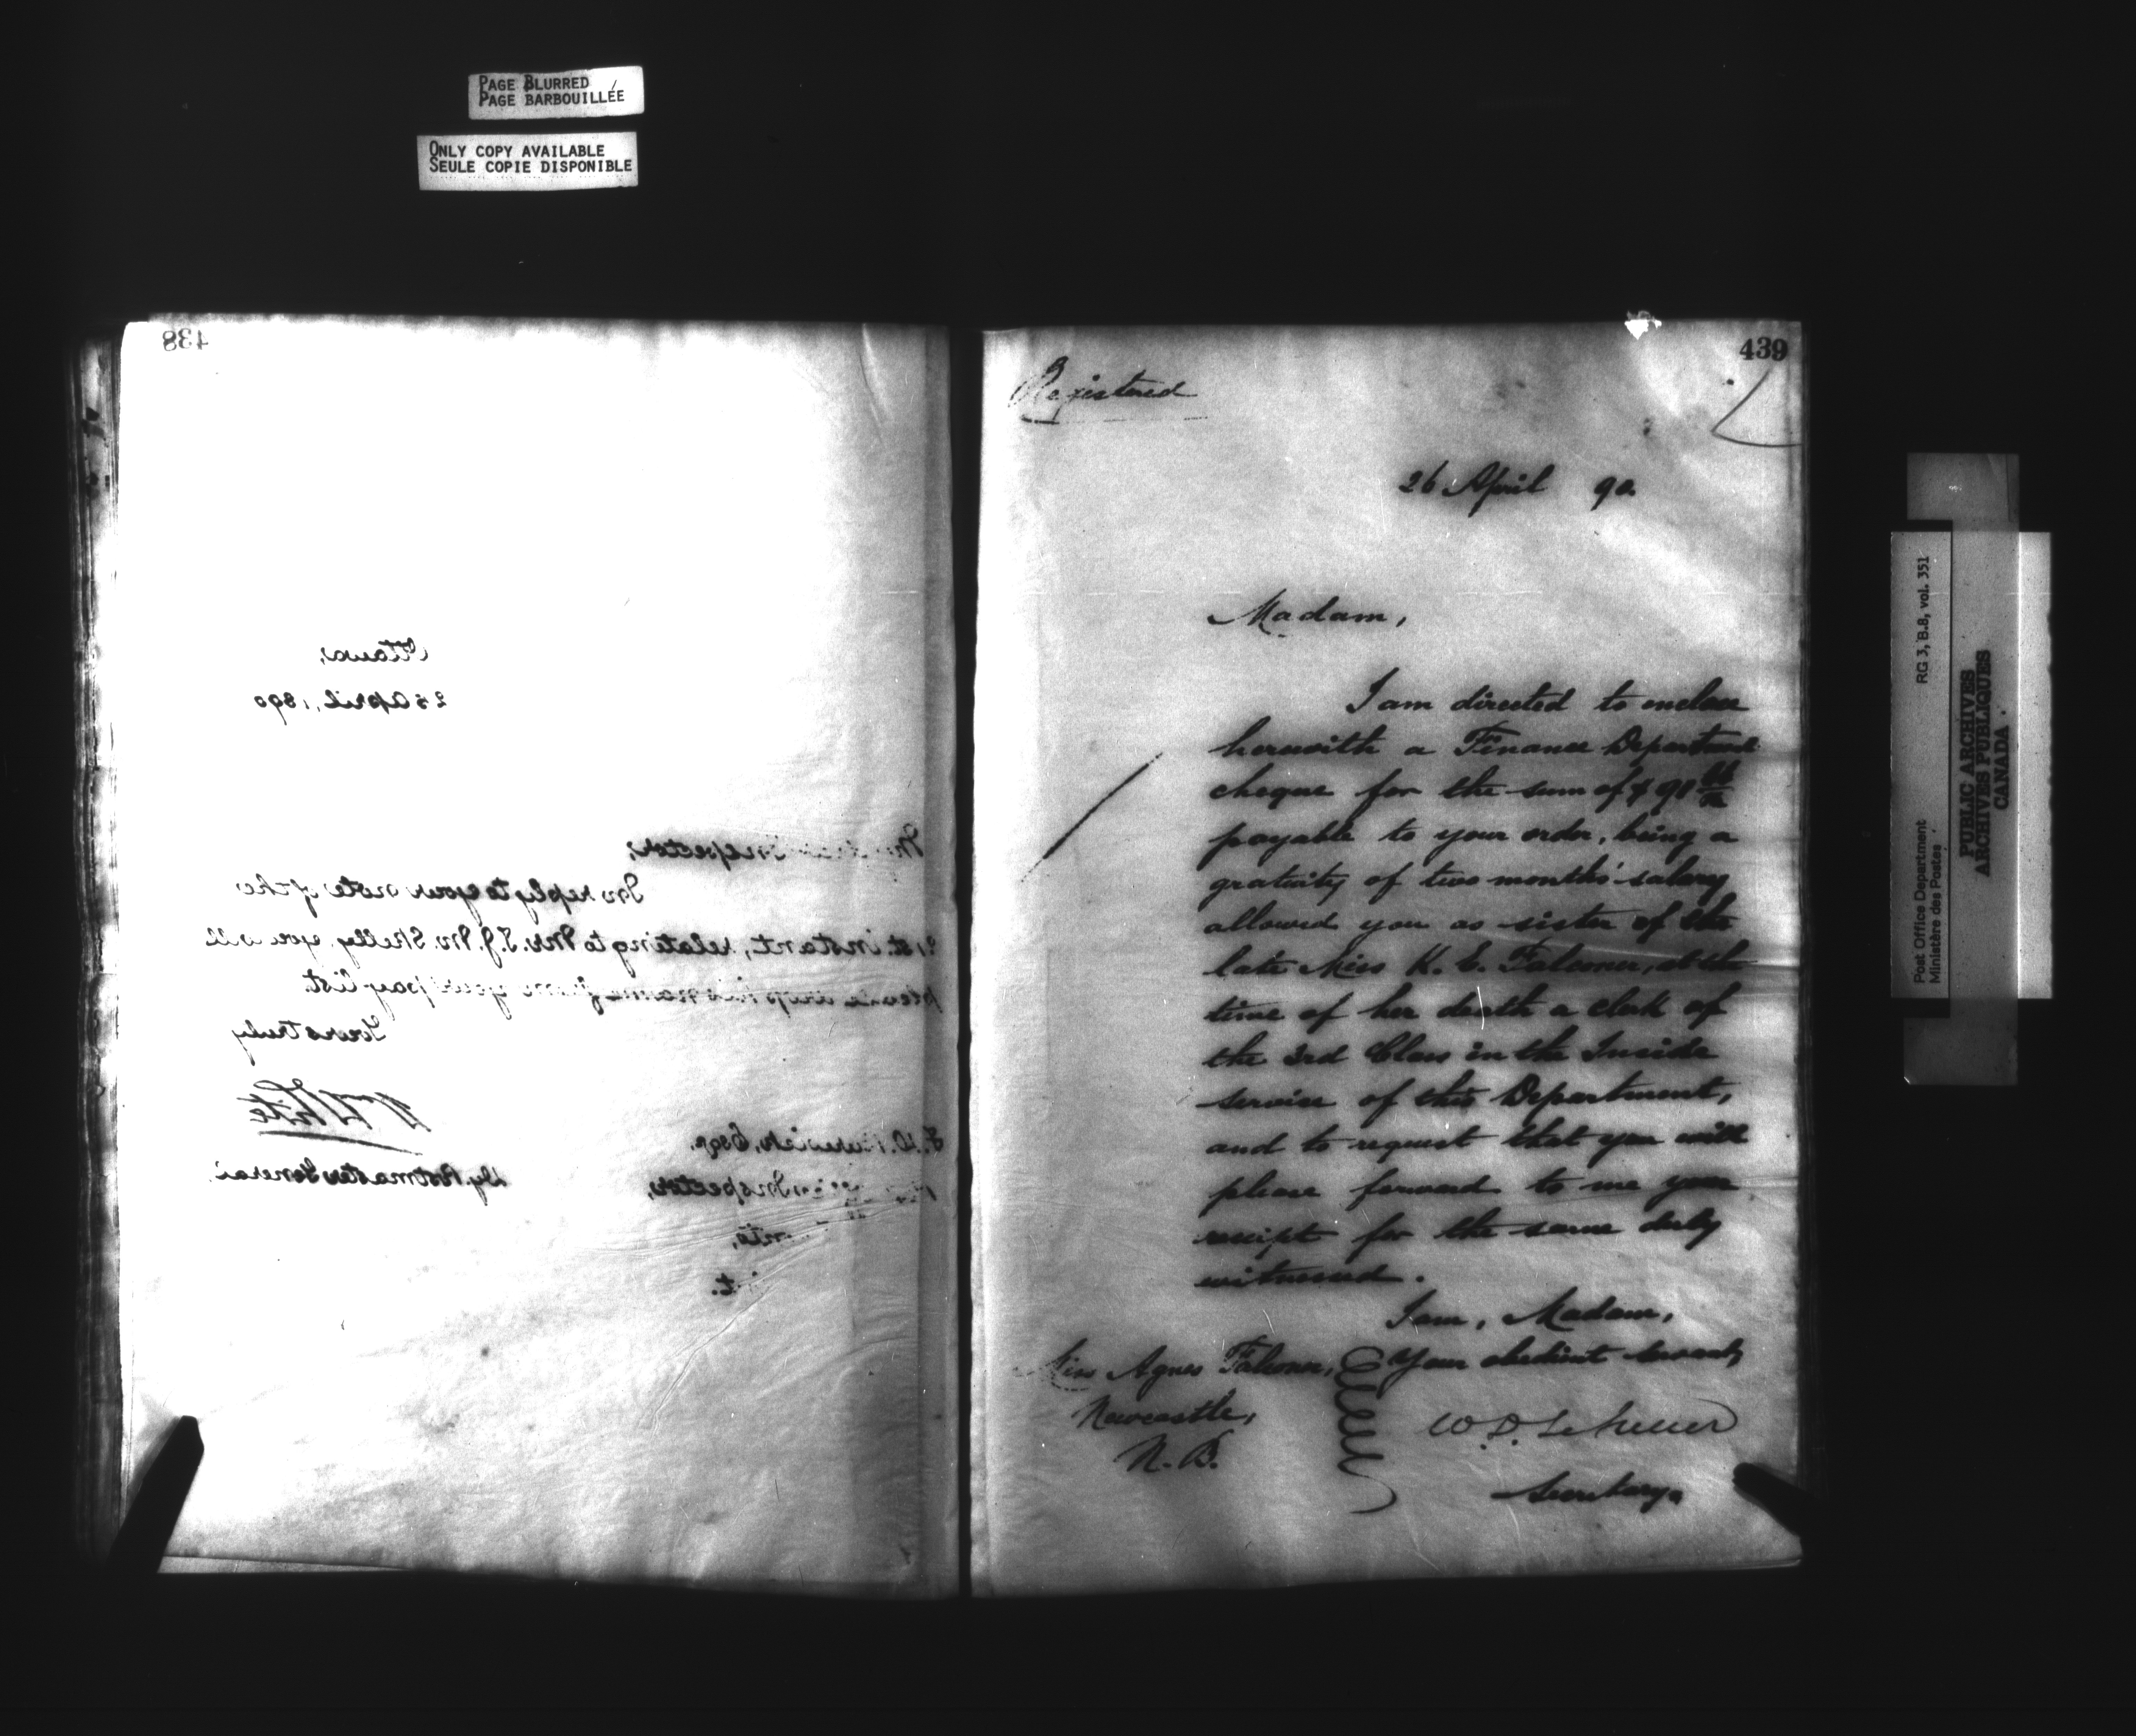 PAGE BLURRED
PAGE BARBOUILLÉE
ONLY COPY AVAILABLE
SEULE COPIE DISPONIBLE
438
Ottawa,
25 April, 1890
Inspector,
In reply to your note of the
21st. instant, relating to Mr. T. J. W. Skelly, you will
please drop his name from your pay list.
Yours truly
W White
Dy. Postmaster General
Esqr.
Inspector,
439
Registered
26 April 90
Madam,
I am directed to enclose
herewith a Finance Department
cheque for the sum of $ 98
payable to your order, being a
gratuity of two months' salary
allowed you as sister of the
late Miss K. E. Falconer, at the
time of her death a clerk of
the 3rd Class in the Inside
service of this Department,
and to request that you will
please forward to me your
receipt for the same duly
witnessed.
I am, Madam,
Your obedient servant,
W. D. LeSueur
Secretary.
Miss Agnes Falconer,
Newcastle,
N. B.
Post Office Department
Ministère des Postes
RG 3, B.8, vol. 351
PUBLIC ARCHIVES
ARCHIVES PUBLIQUES
CANADA